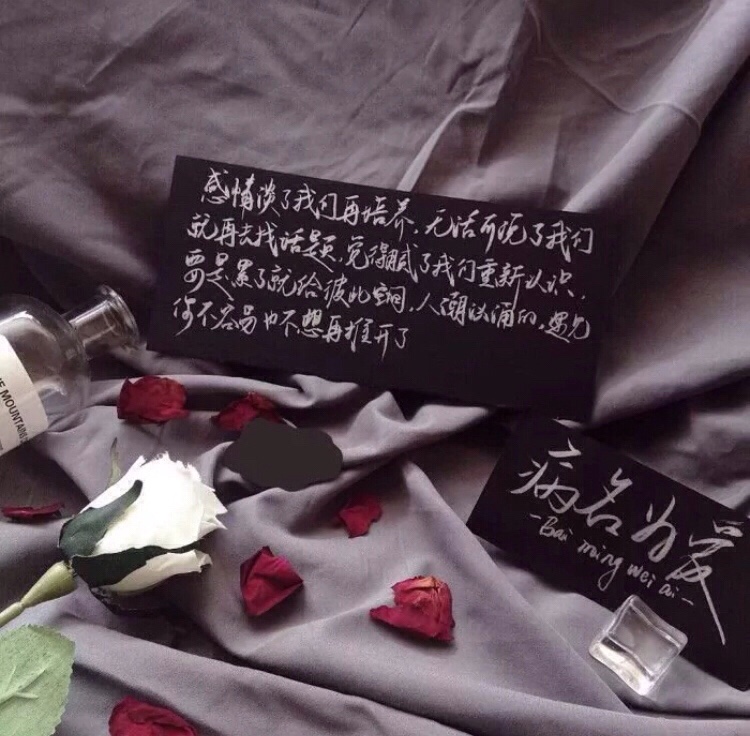 感情淡了我们再培养，无话可说了我们
就再去找话题，觉得腻了我们重新认识，
要是累了就给彼此空间，人潮汹涌的，遇见
你不容易也不想再推开了
病名为爱
-Bai ming wei ai-
MOUNTAINS